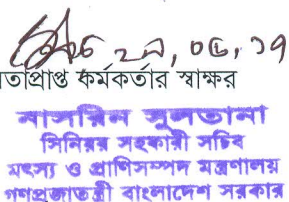 ২৯,০৮,১৭
তাপ্রাপ্ত কর্মকর্তার স্বাক্ষর
নাসরিন সুলতানা
সিনিয়র সহকারী সচিব
মৎস্য ও প্রাণিসম্পদ মন্ত্রণালয়
গণপ্রজাতন্ত্রী বাংলাদেশ সরকার